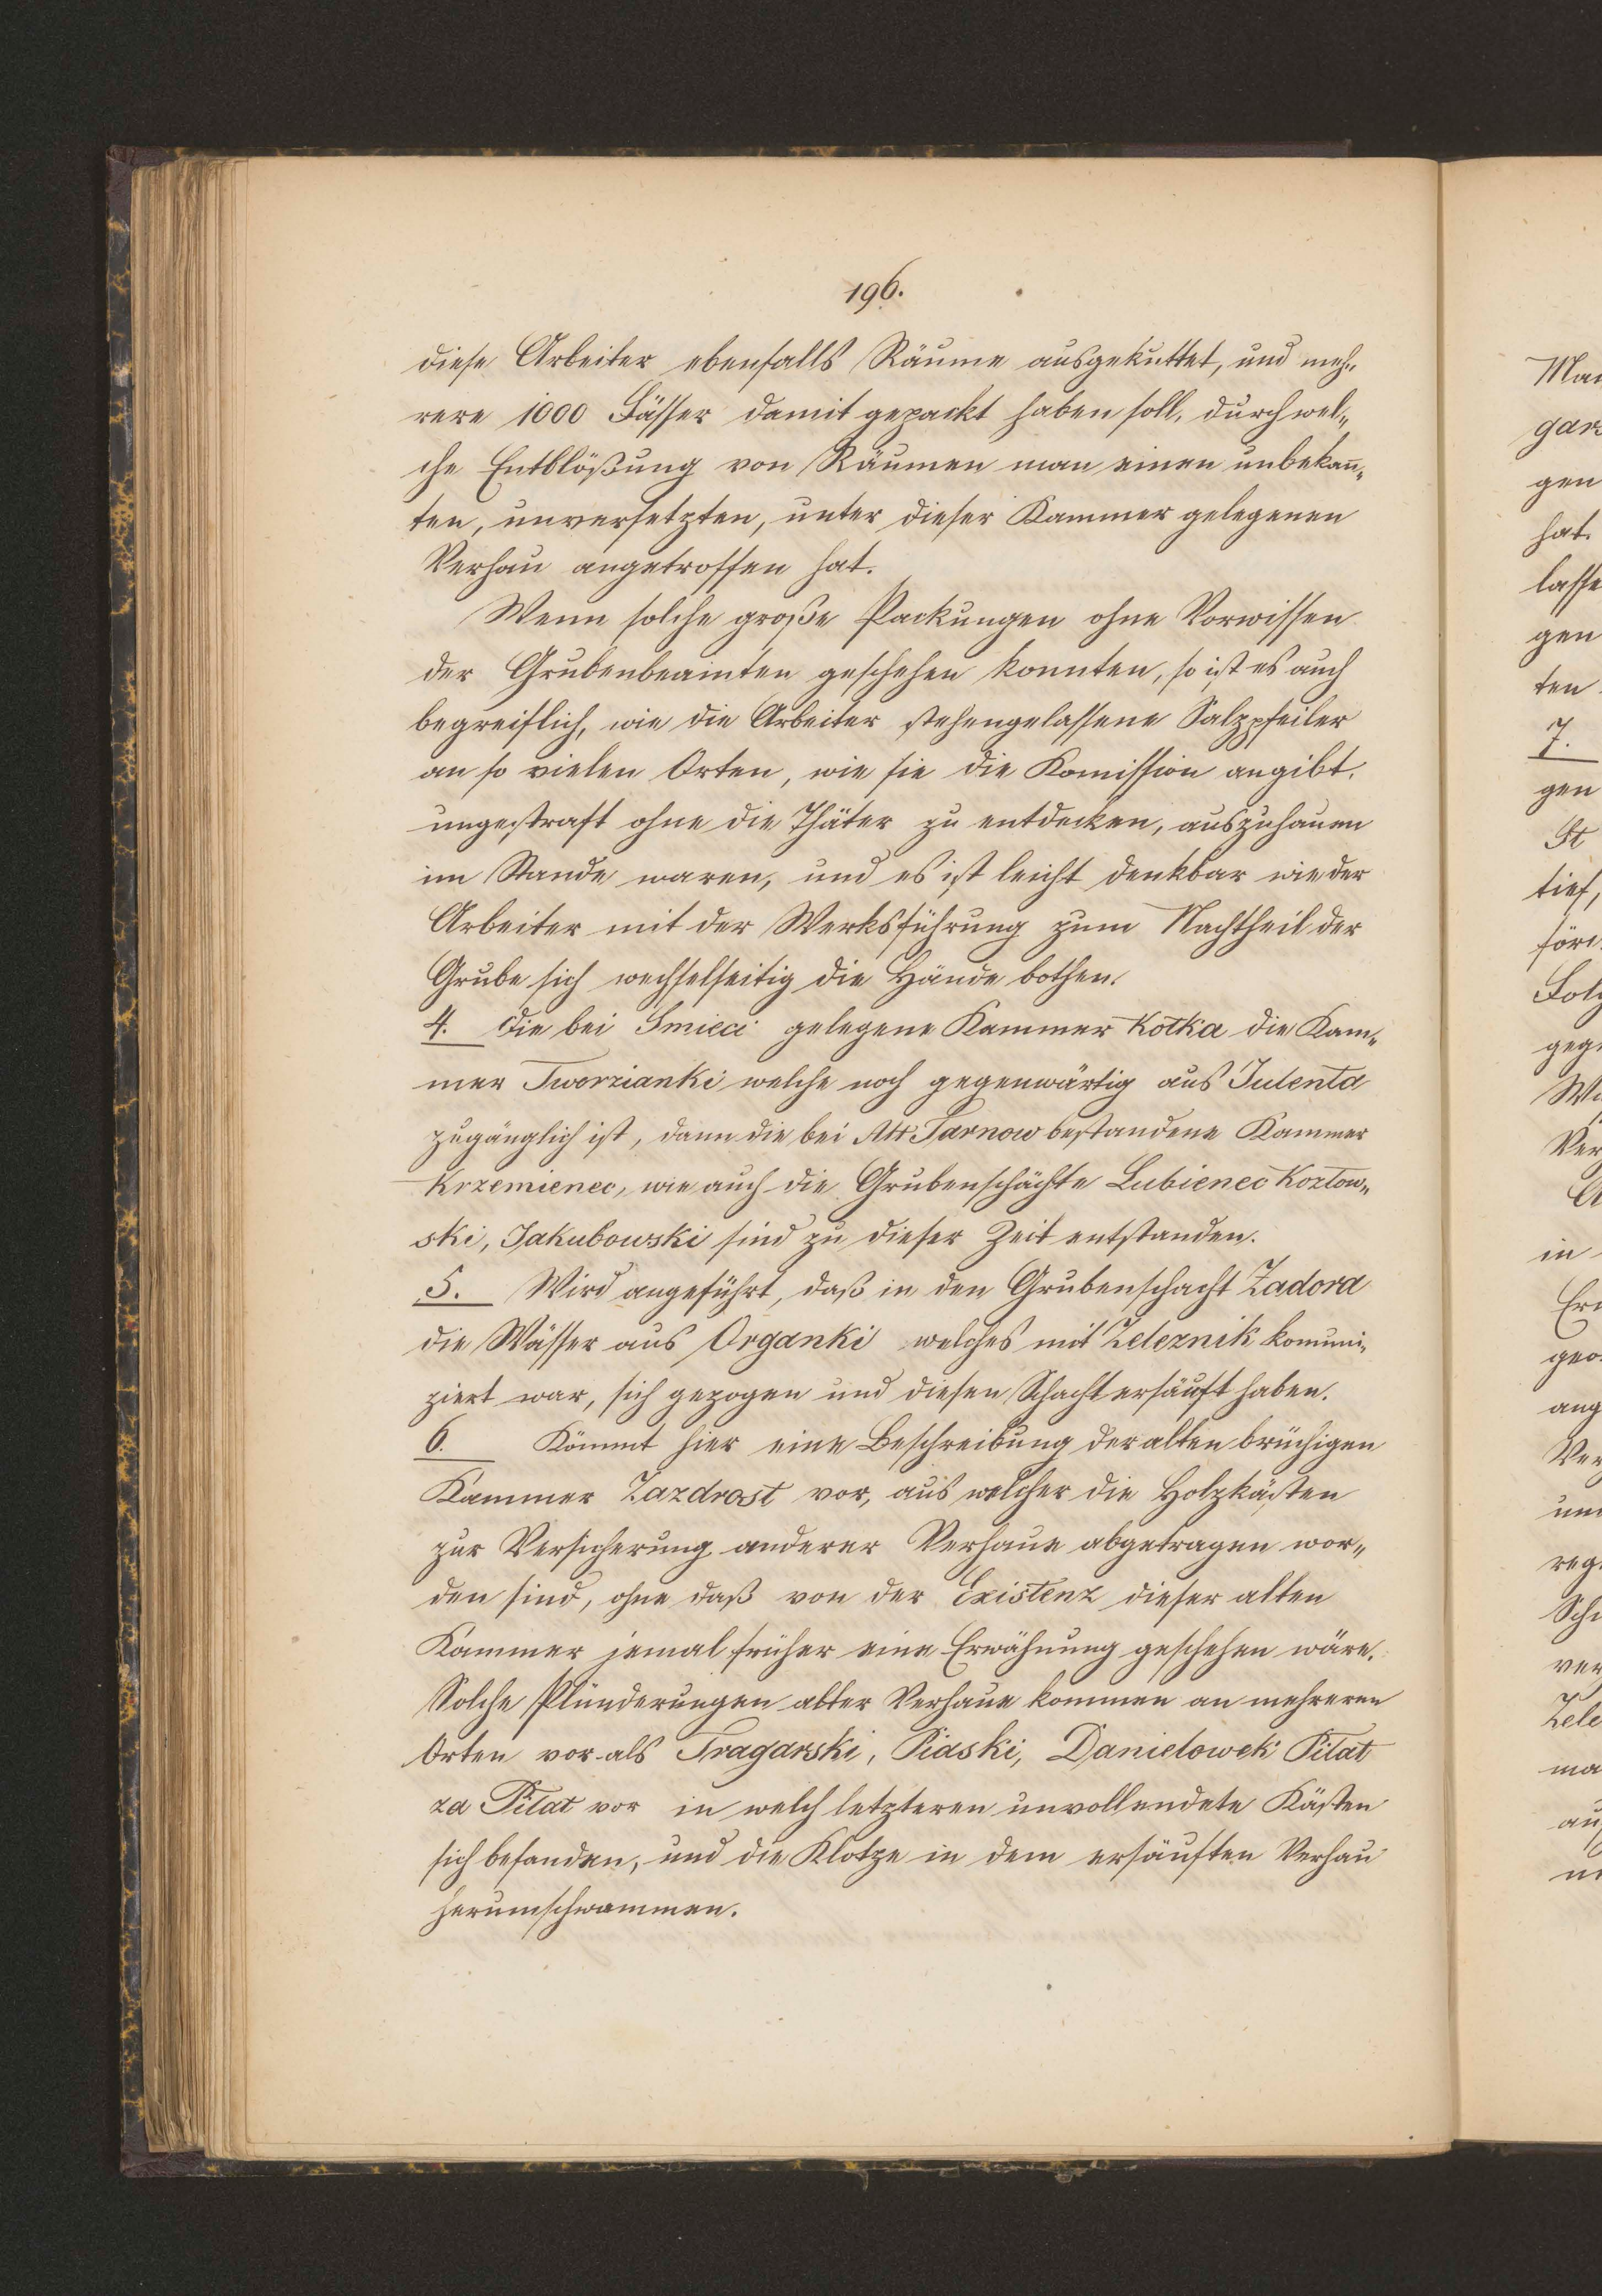 196.
diese Arbeiter ebenfalls Räume ausgekuttet, und meh„
rere 1000 Fässer damit gepackt haben soll, durch wel„
che Entblößung von Räumen man einen unbekan̄„
ten, unversetzten, unter dieser Kammer gelegenen
Verhau angetroffen hat.
Wenn solche große Packungen ohne Vorwissen
der Grubenbeamten geschehen konnten, so ist es auch
begreiflich, wie die Arbeiter stehengelassene Salzpfeiler
an so vielen Orten, wie sie die Komission angibt,
ungestraft ohne die Thäter zu entdecken, auszuhauen
im Stande waren, und es ist leicht denkbar wie der
Arbeiter mit der Werksführung zum Nachtheil der
Grube sich wechselseitig die Hände bothen.
4. Die bei Smieci gelegene Kammer Kotka die Kam„
mer Tworzianki welche noch gegenwärtig aus Julenta
zugänglich ist, dann die bei Alt Tarnow bestandene Kammer
Krzemienec, wie auch die Grubenschächte Lubienec Kozlow„
ski, Jakubowski sind zu dieser Zeit entstanden.
5. Wird angeführt, daß in den Grubenschacht Zadora
die Wässer aus Organki welches mit Zeleznik komuni„
ziert war, sich gezogen und diesen Schacht ersäuft haben.
6. Kömmt hier eine Beschreibung der alten brüchigen
Kammer Zazdrost vor, aus welcher die Holzkästen
zur Versicherung anderer Verhaue abgetragen wor„
den sind, ohne daß von der Existenz dieser alten
Kammer jemal früher eine Erwähnung geschehen wäre.
Solche Plünderungen alter Verhaue kommen an mehreren
Orten vor als Tragarski, Piaski, Danielowek Pilat
za Pilat vor in welch letzteren unvollendete Kästen
sich befanden, und die Klotze in dem ersäuften Verhau
herumschwammen.